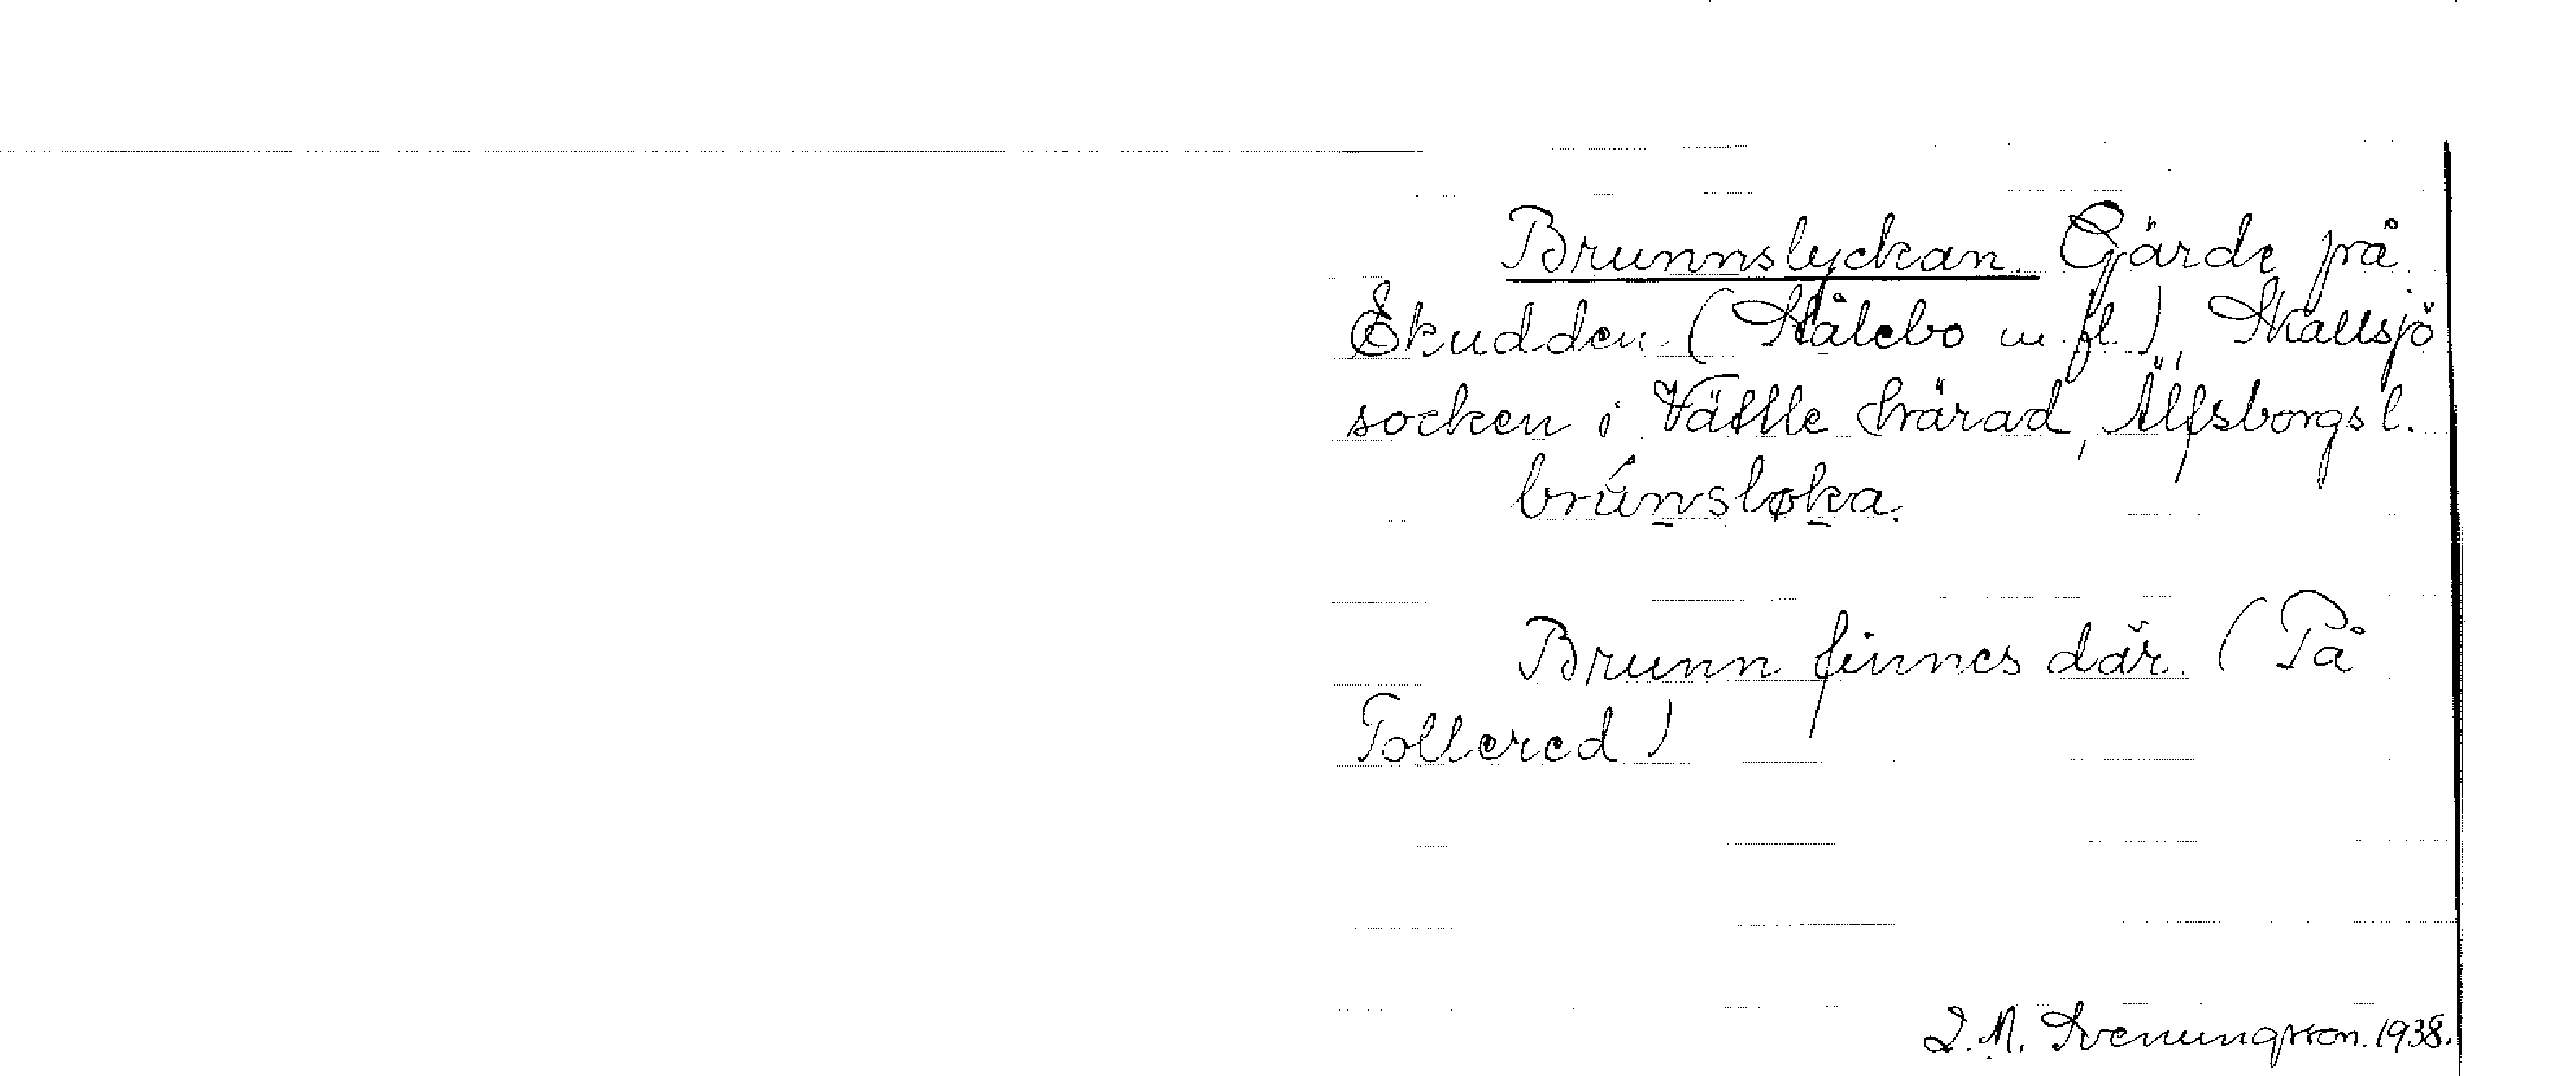 Brunnslyckan. Gärde på
Ekudden (Stålebo m. fl.), Skallsjö
socken i Vättle härad, Älfsborgs l.
brúnsløka.
Brunn finnes där. (På
Tollered)
I. M. Svenungsson. 1938.